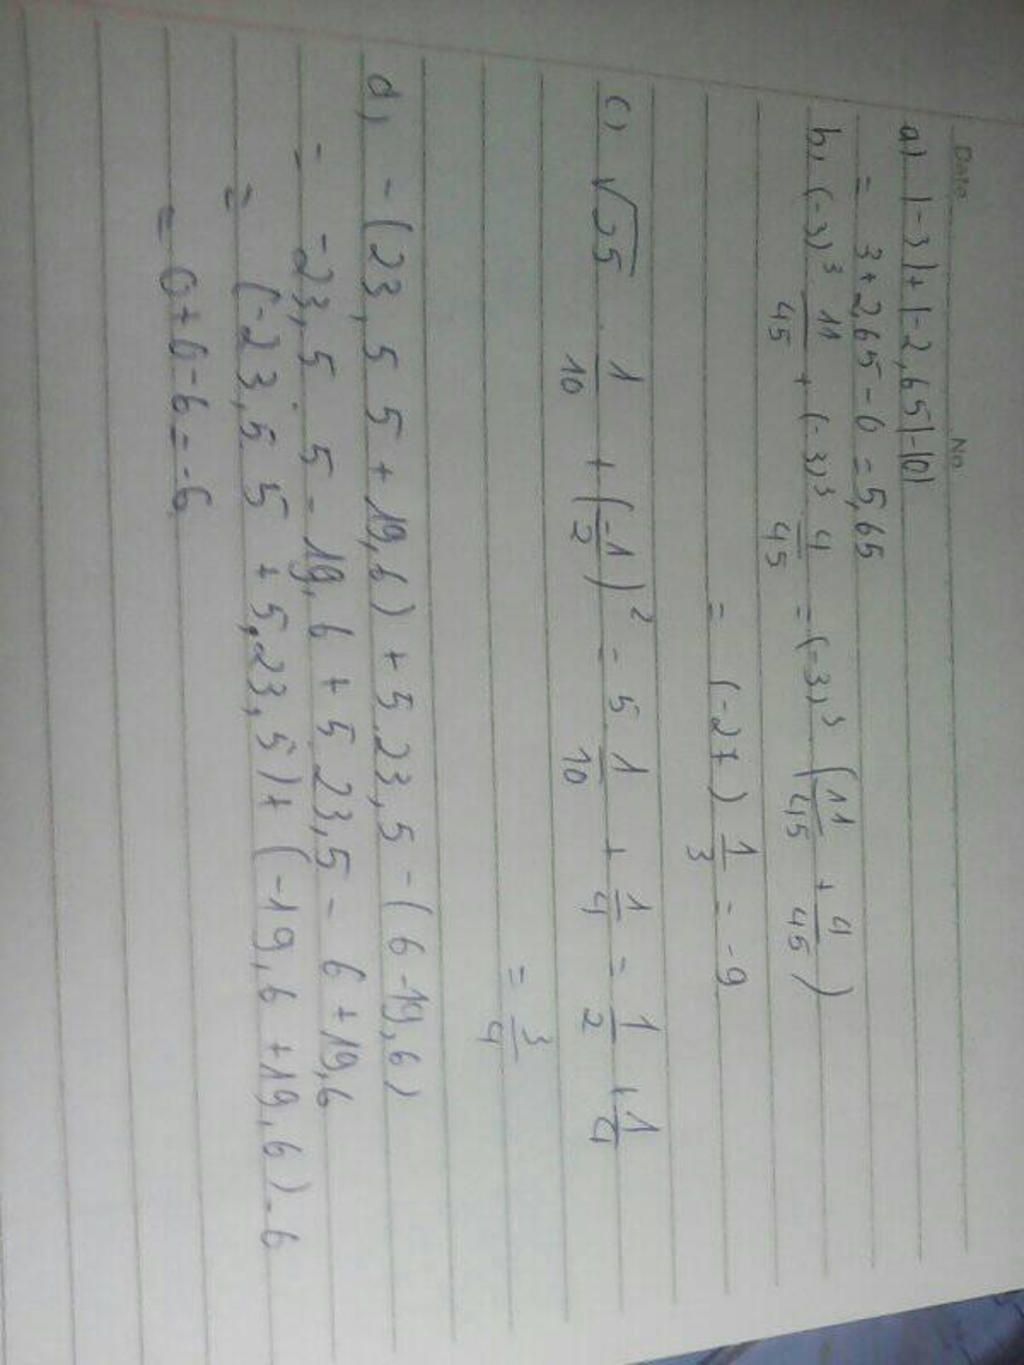 Date No
a) |-3|+|-2,65|-|0|
= 3+2,65-0 = 5,65
b, (-3)³ 11/45 + (-3)³ 4/45 = (-3)³ (11/45 + 4/45)
= (-27) 1/3 = -9
c, √25 . 1/10 + (-1/2)² = 5 1/10 + 1/4 = 1/2 + 1/4
= 3/4
d, -(23,5 5 + 19,6) + 5.23,5 - (6-19,6)
= -23,5. 5 - 19,6 + 5.23,5 - 6 + 19,6
= (-23,5. 5 + 5.23,5) + (-19,6 + 19,6) - 6
= 0+0-6 = -6